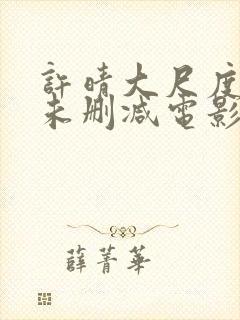 許晴大尺度
未刪減電影
薛菁華